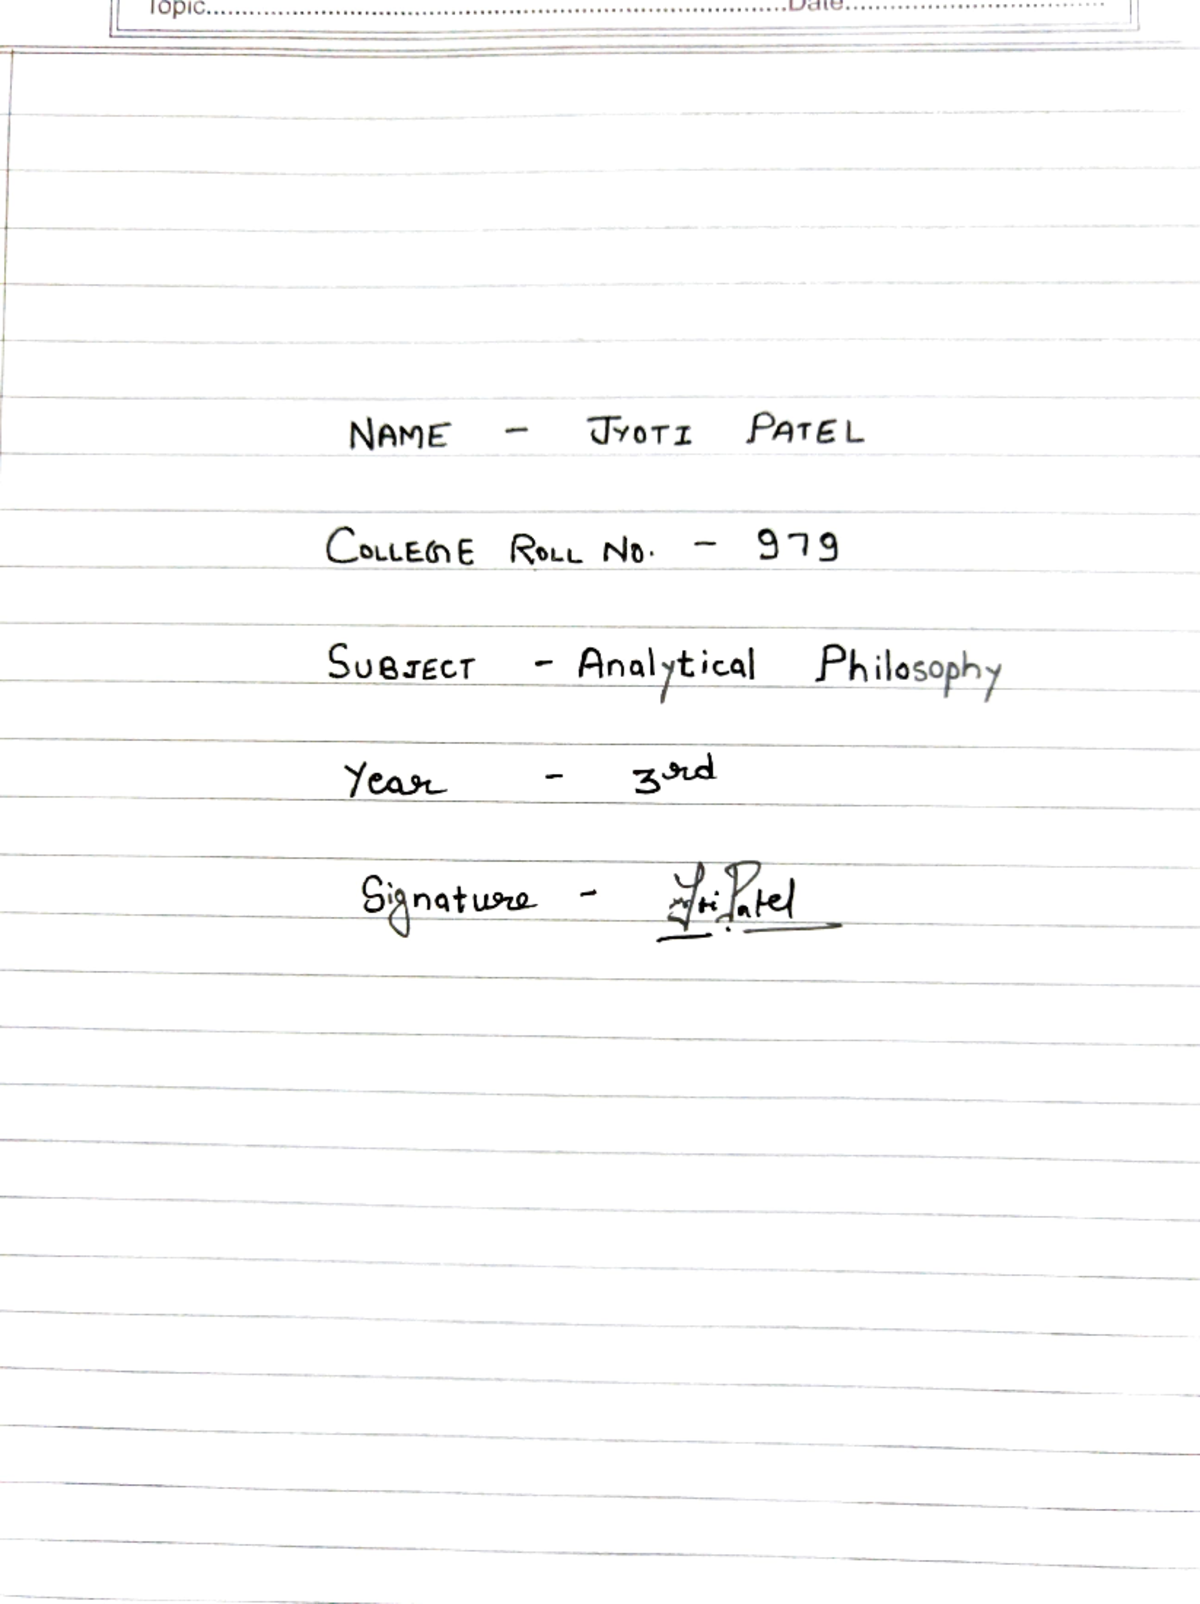 Topic Date
NAME - JYOTI PATEL
COLLEGE ROLL NO. - 979
SUBJECT - Analytical Philosophy
Year - 3rd
Signature - Patel